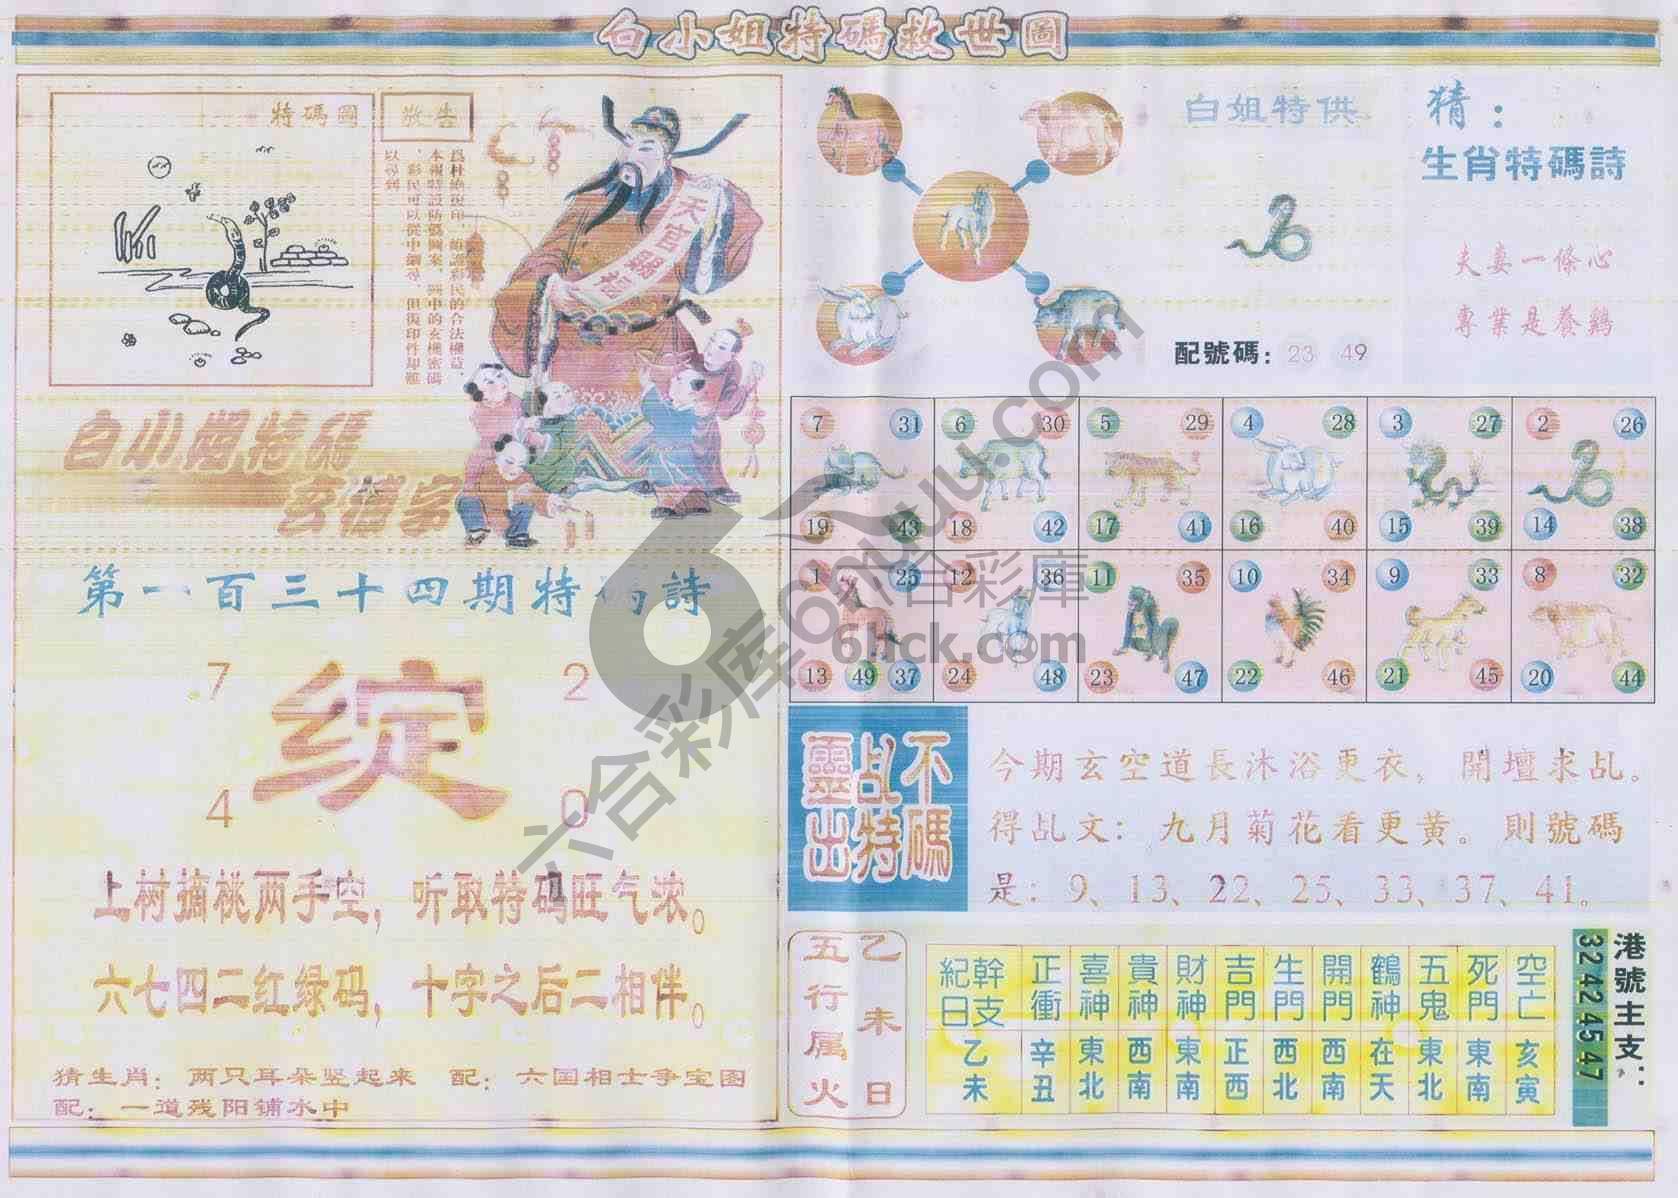 白小姐特碼救世圖
特碼圖
敬告
爲杜絶復印，維護彩民的合法權益，
本報特設防僞圖案，圖中的玄機密碼
，彩民可以從中細尋，但復印件却難
以尋到
天官賜福
白小姐特碼
玄機字
第一百三十四期特碼詩
7 2
绽
4 0
上树摘桃两手空，听取特码旺气浓。
六七四二红绿码，十字之后二相伴。
猜生肖：两只耳朵竖起来 配：六国相士争宝图
配：一道残阳铺水中
白姐特供
配號碼：23 49
猜：
生肖特碼詩
夫妻一條心
專業是養鷄
7 31 6 30 5 29 4 28 3 27 2 26
19 43 18 42 17 41 16 40 15 39 14 38
1 25 12 36 11 35 10 34 9 33 8 32
13 49 37 24 48 23 47 22 46 21 45 20 44
靈乩不
出特碼
今期玄空道長沐浴更衣，開壇求乩。
得乩文：九月菊花看更黄。則號碼
是：9、13、22、25、33、37、41。
五行属火
乙未日
紀日 幹支 正衝 喜神 貴神 財神 吉門 生門 開門 鶴神 五鬼 死門 空亡
乙未 辛丑 東北 西南 東南 正西 西北 西南 在天 東北 東南 亥寅
港號主支：
32 42 45 47
六合彩库6htuu.com
六合彩庫
6hck.com